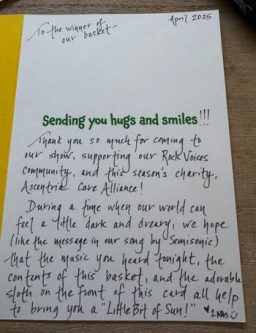 To the winner of
our basket-
April 2025
Sending you hugs and smiles!!!
Thank you so much for coming to
our show, supporting our Rock Voices
community, and this season's charity,
Ascentria Care Alliance!
During a time when our world can
feel a little dark and dreary, we hope
(like the message in our song by Semisonic)
that the music you heard tonight, the
contents of this basket, and the adorable
sloth on the front of this card all help
to bring you a "Little Bit of Sun!" ♥